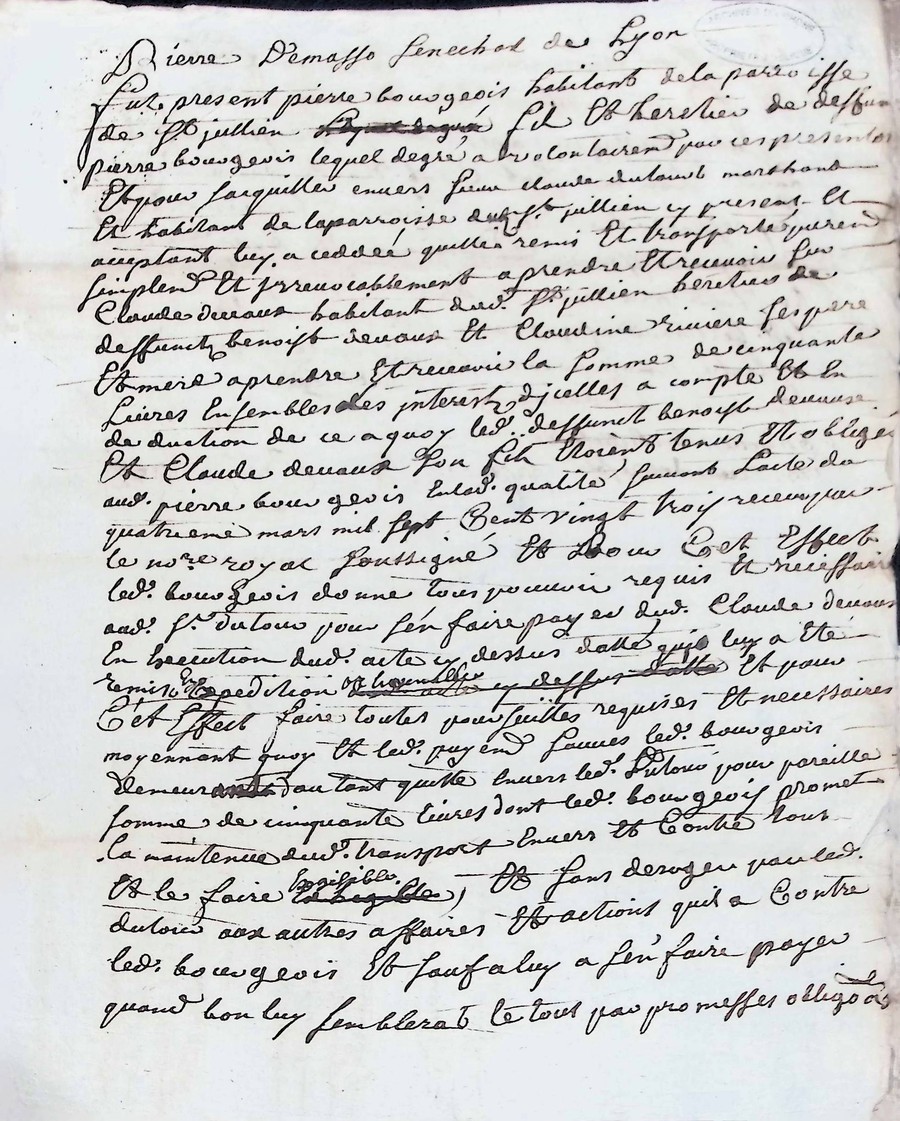 Pierre Demasso Senechal de Lyon
Fut present pierre bourgeois habitant de la parroisse
de St jullien fils Et heretier de deffunt
pierre bourgeois lequel degré a volontairemt par ces presentes
Et pour sacquitter envers sieur claude dutour marchant
Et habitant de la parroisse dudt St jullien cy present Et
acceptant luy a ceddéé quitté remis Et transporté purem
simplemt Et irrevocablement aprendre Et recevoir sur
Claude devaux habitant dud. St jullien heretier de
deffunct benoist devaux Et Claudine riviere ses pere
Et mere aprendre Et recevoir la somme de cinquante
Livres Ensembles les interest djcelles a compte Et En
deduction de ce a quoy led. deffunct benoist devaux
Et Claude devaux son fils Etoient tenus Et obligés
aud. pierre bourgeois Enlad. qualité suivant Lacte du
quatrieme mars mil sept Cent vingt troy receu par
le nore royal soussigné Et pour Cet Effect
led. bourgeois donne tous pouvoir requis Et necessaire
aud. Sr. dutour pour sén faire payer dud. Claude devaux
En Execution dud. acte cy dessus datté quil luy a Eté
remis En Expedition Et pour
Cet Effect faire toutes poursuittes requises Et necessaires
moyennant quoy Et led. payemt led. bourgeois
Demeure dautant quitte Envers led. Dutour pour pareille
somme de cinquante Livres dont led. bourgeois promet
la maintenue dud. transport Envers Et Contre tous
Et le faire Exigible Et sans deroger par led.
dutour aux autres affaires Et actions quil a Contre
led. bourgeois Et sauf a luy a sén faire payer
quand bon luy semblerat le tout par promesses obligoas